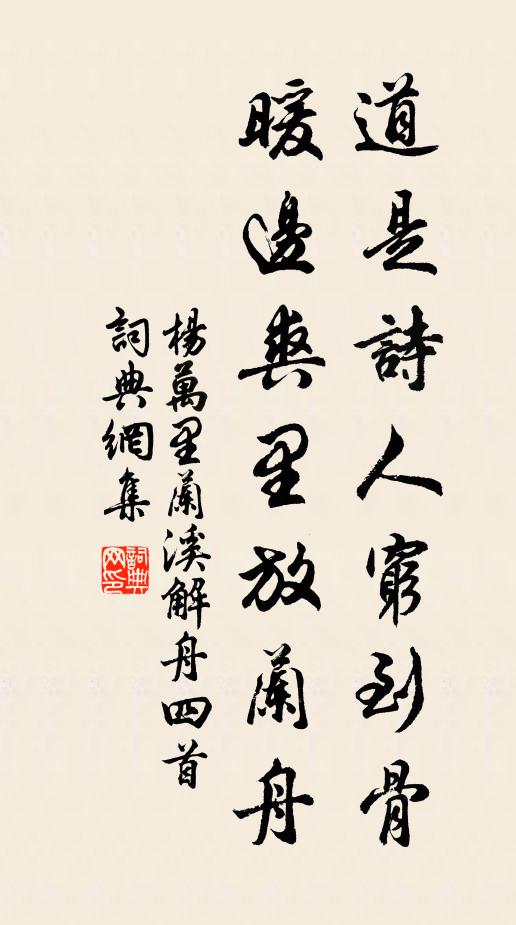 道是詩人窮到骨
暖邊爽里放蘭舟
楊萬里蘭溪解舟四首
詞典網集
詞典網印